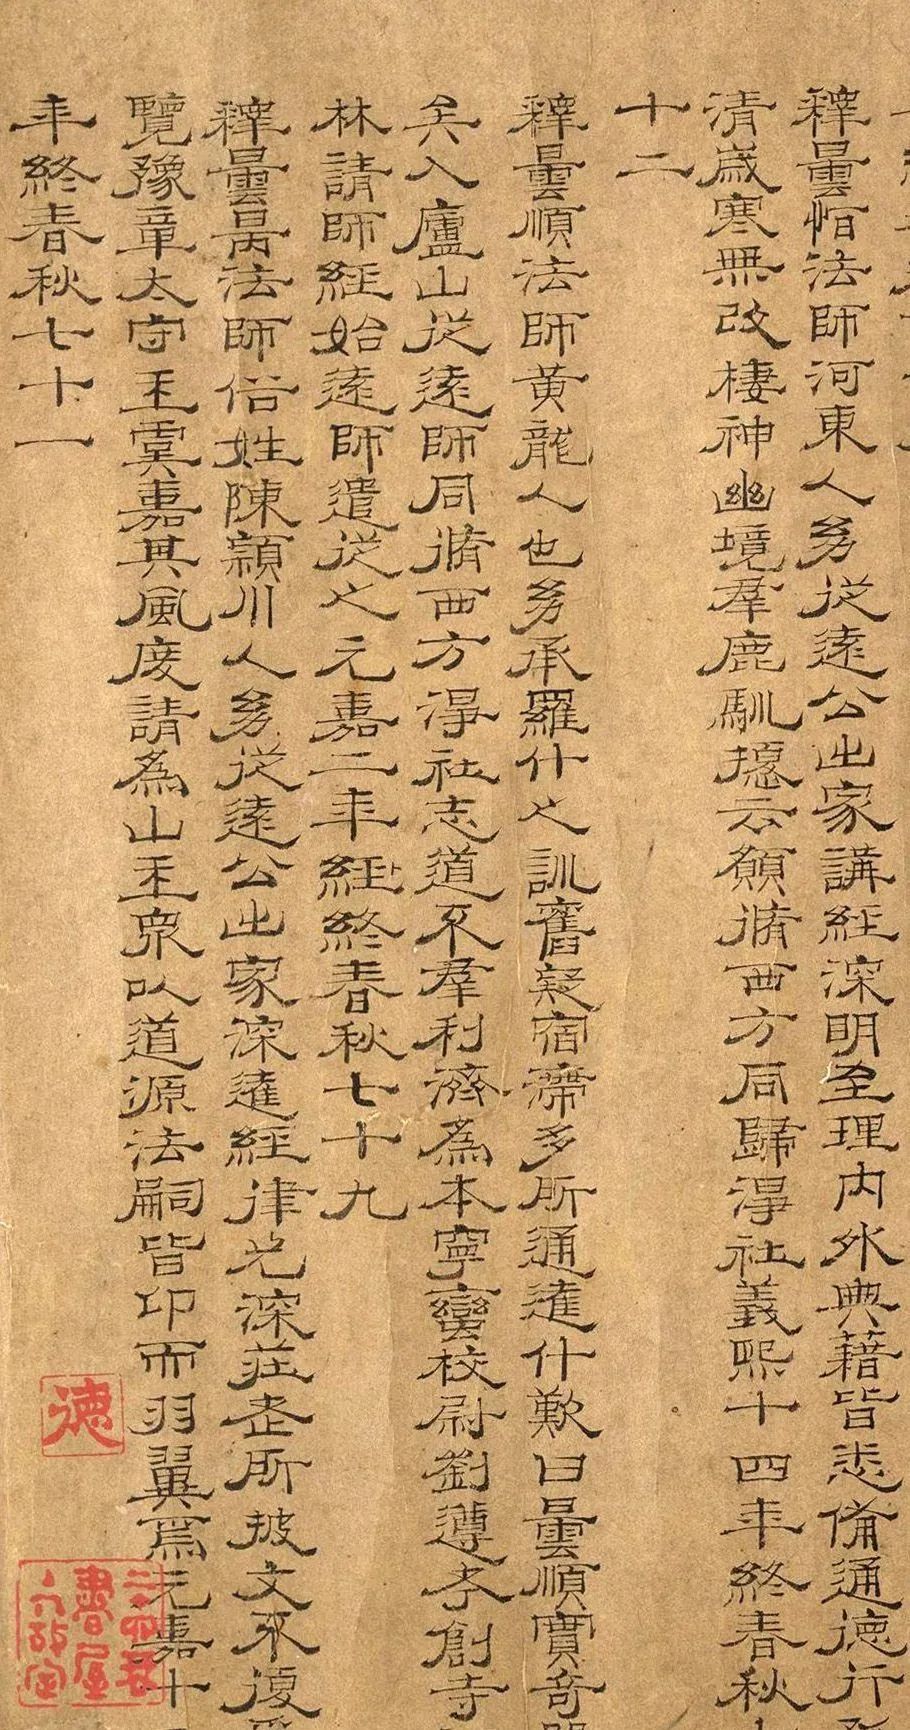 釋曇恒法師河東人幼從遠公出家講經深明至理内外典藉皆悉俻通德行
清歲寒無改棲神幽境羣鹿馴擾云願脩西方同歸淨社義熙十四年終春秋
十二
釋曇順法師黄龍人也幼承羅什之訓舊疑宿滯多所通達什歎曰曇順實奇
矣入廬山從遠師同脩西方淨社志道不羣利濟為本寧蠻校尉劉遵孝創寺
林請師經始遠師遣從之元嘉二年經終春秋七十九
釋曇昺法師俗姓陳潁川人幼從遠公出家深達經律尤深莊老所披文不復
覽豫章太守王虔嘉其風度請為山主衆以道源法嗣皆仰而羽翼焉元嘉十
年終春秋七十一
德